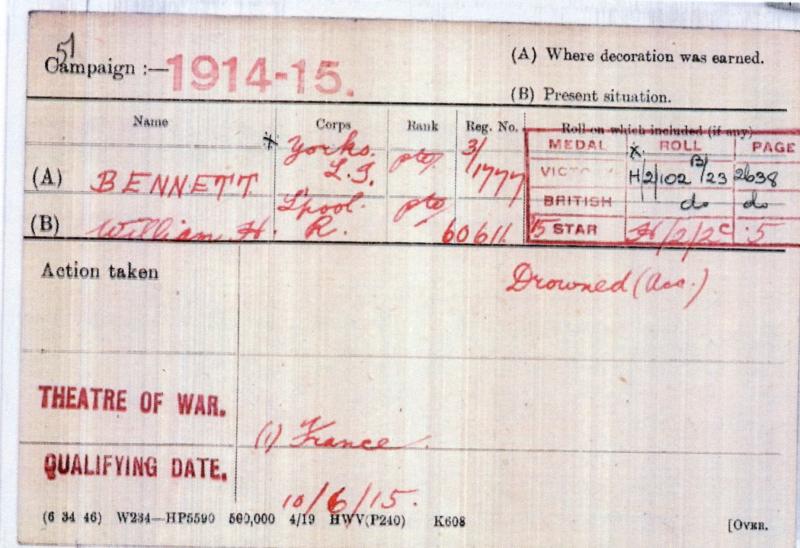 51
Campaign :— 1914-15.
(A) Where decoration was earned.
(B) Present situation.
Name Corps Rank Reg. No. Roll on which included (if any)
MEDAL ROLL PAGE
(A) BENNETT * Yorks. L.I. pte 3/1777
VICTORY H/2/102 B/23 2638
BRITISH do do
(B) William H. L'pool. R. pte 60611
15 STAR H/2/2C 5
Action taken
Drowned (Acc.)
THEATRE OF WAR.
(1) France.
QUALIFYING DATE.
10/6/15.
(6 34 46) W234—HP5590 500,000 4/19 HWV(P240) K608
[OVER.